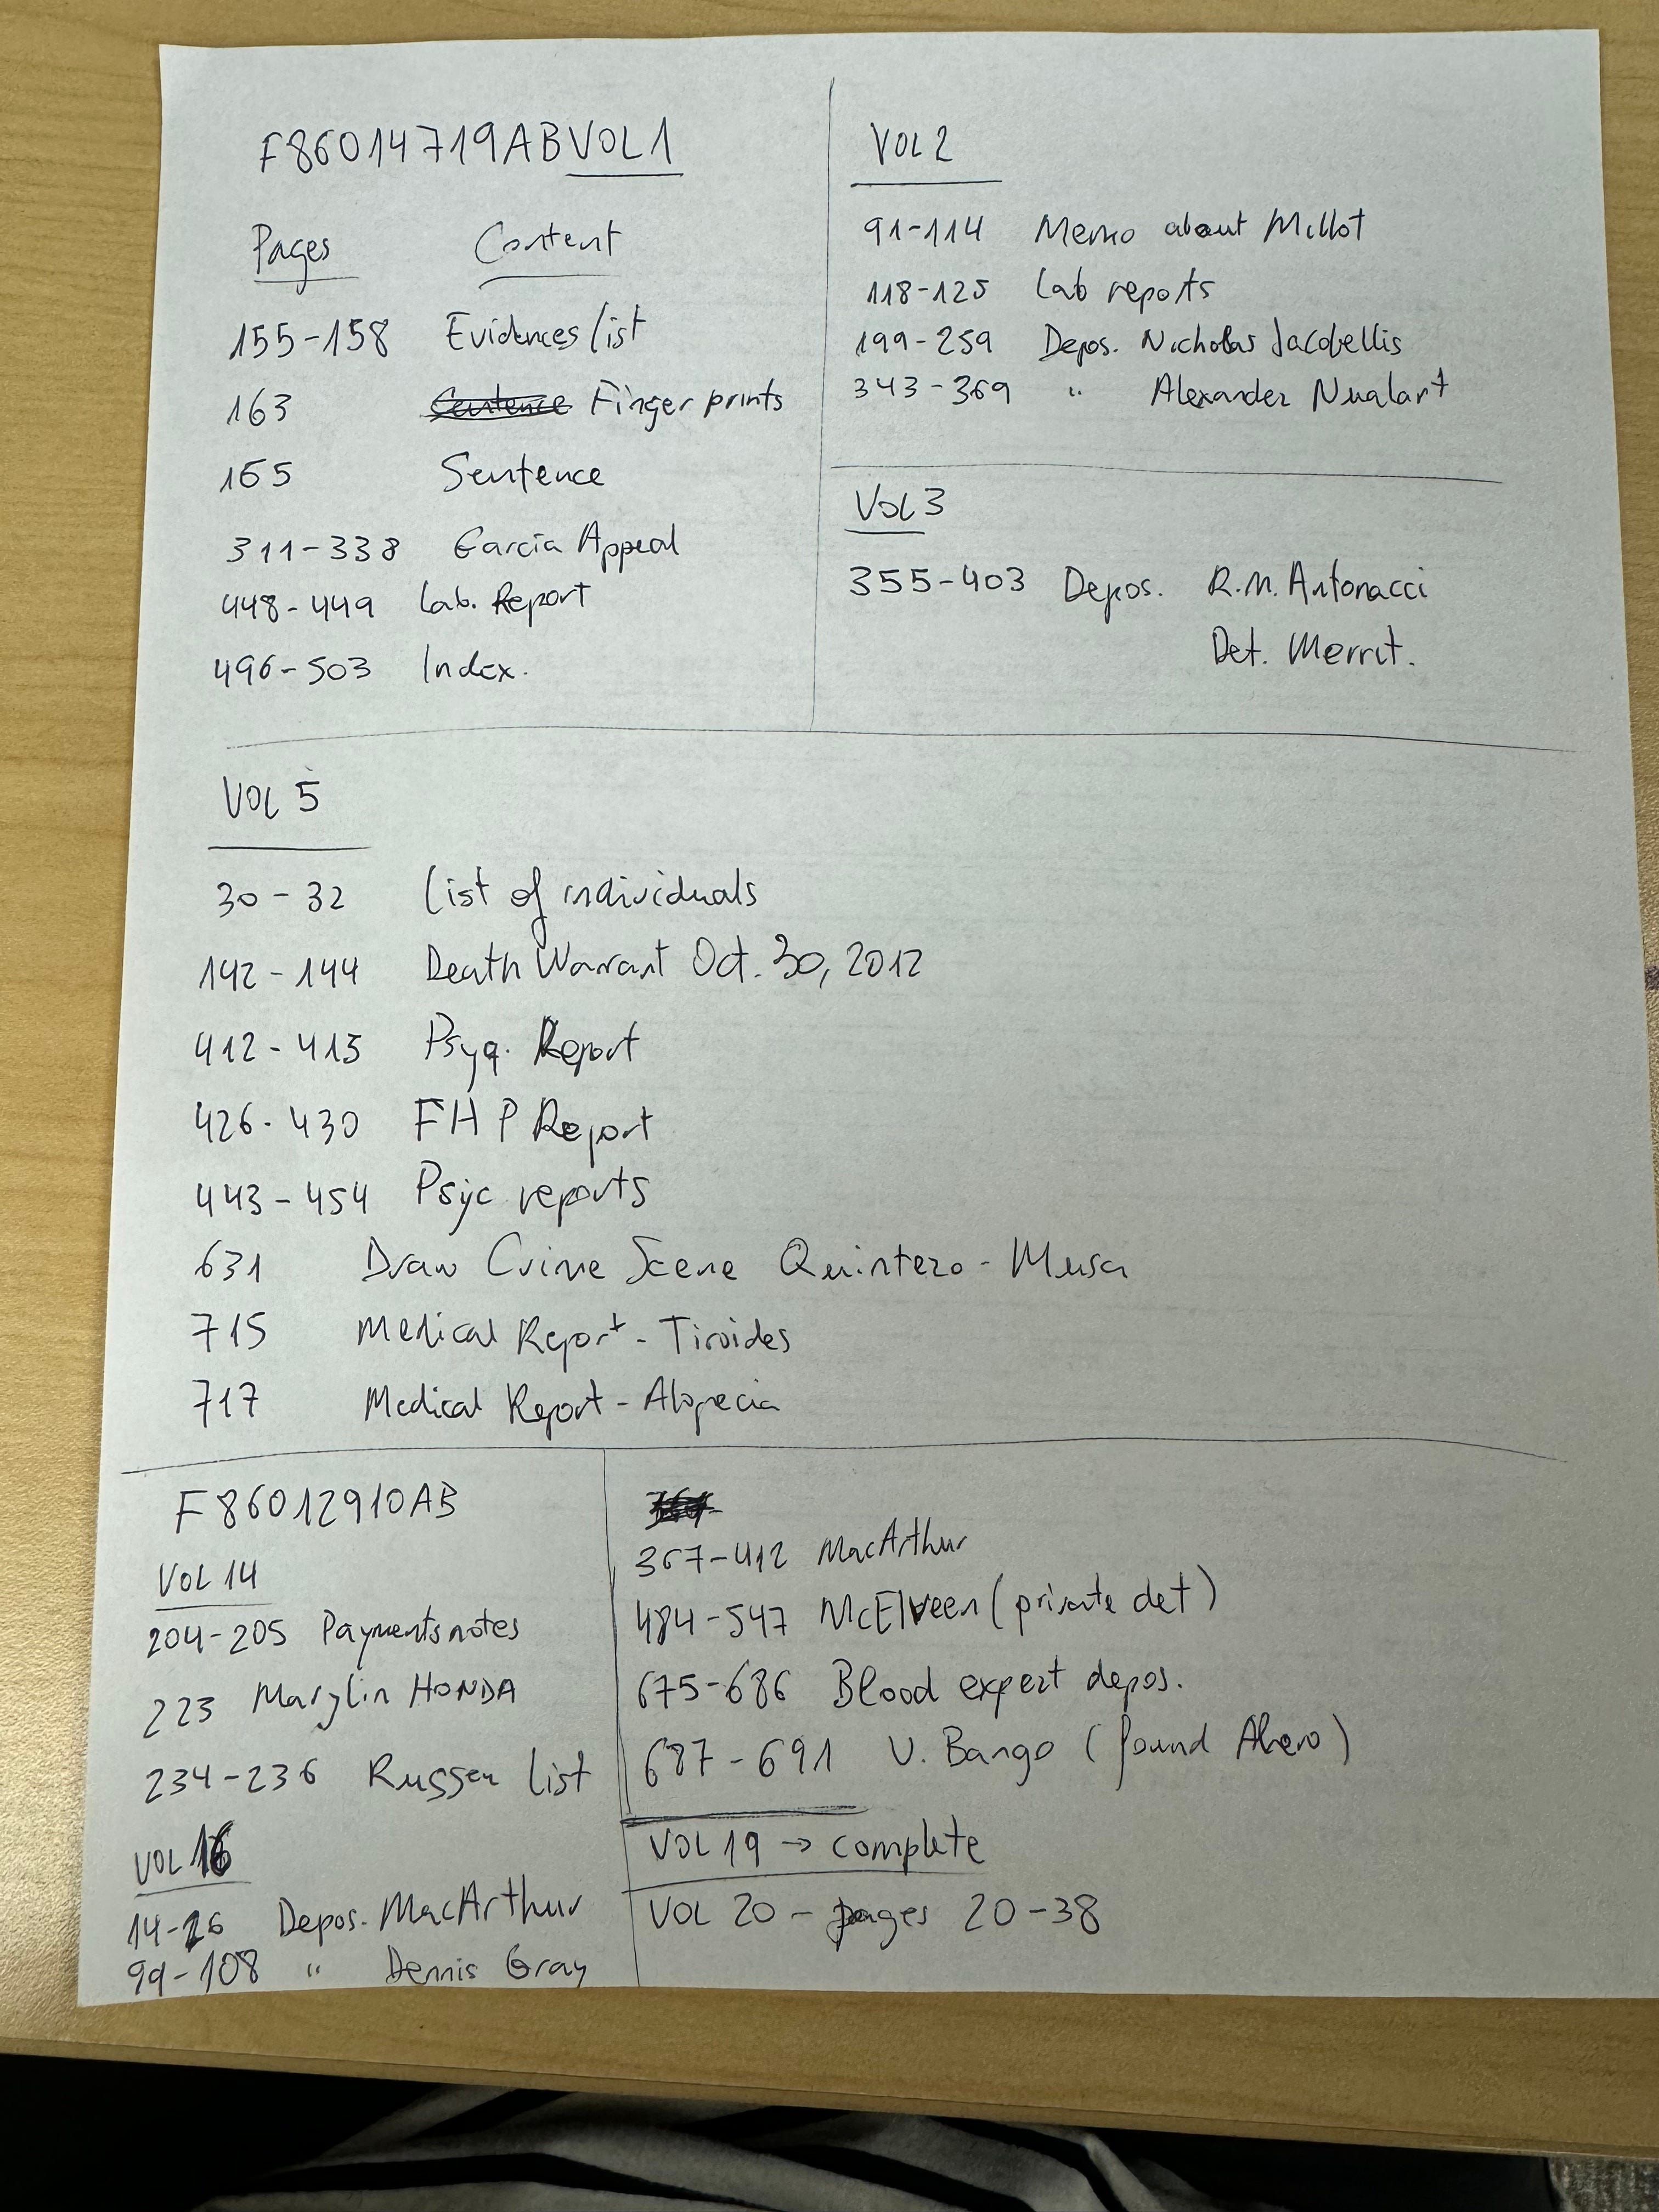 F86014719AB VOL 1
Pages Content
155-158 Evidences list
163 Sentence Finger prints
165 Sentence
311-338 Garcia Appeal
448-449 Lab. Report
496-503 Index.
VOL 2
91-114 Memo about Millot
118-125 Lab reports
199-259 Depos. Nicholas Jacobellis
343-369 " Alexander Nualart
VOL 3
355-403 Depos. R.M. Antonacci
Det. Merrit.
VOL 5
30-32 List of individuals
142-144 Death Warrant Oct. 30, 2012
412-415 Psyq. Report
426-430 FHP Report
443-454 Psyc reports
631 Draw Crime Scene Quintero-Musa
715 Medical Report - Tiroides
717 Medical Report - Alopecia
F86012910AB
VOL 14
204-205 Payments notes
223 Marylin HONDA
234-236 Russen list
VOL 16
14-26 Depos. MacArthur
99-108 " Dennis Gray
367-412 MacArthur
484-547 McElveen (private det)
675-686 Blood expert depos.
687-691 V. Bango (found Alvero)
VOL 19 → complete
VOL 20 - pages 20-38